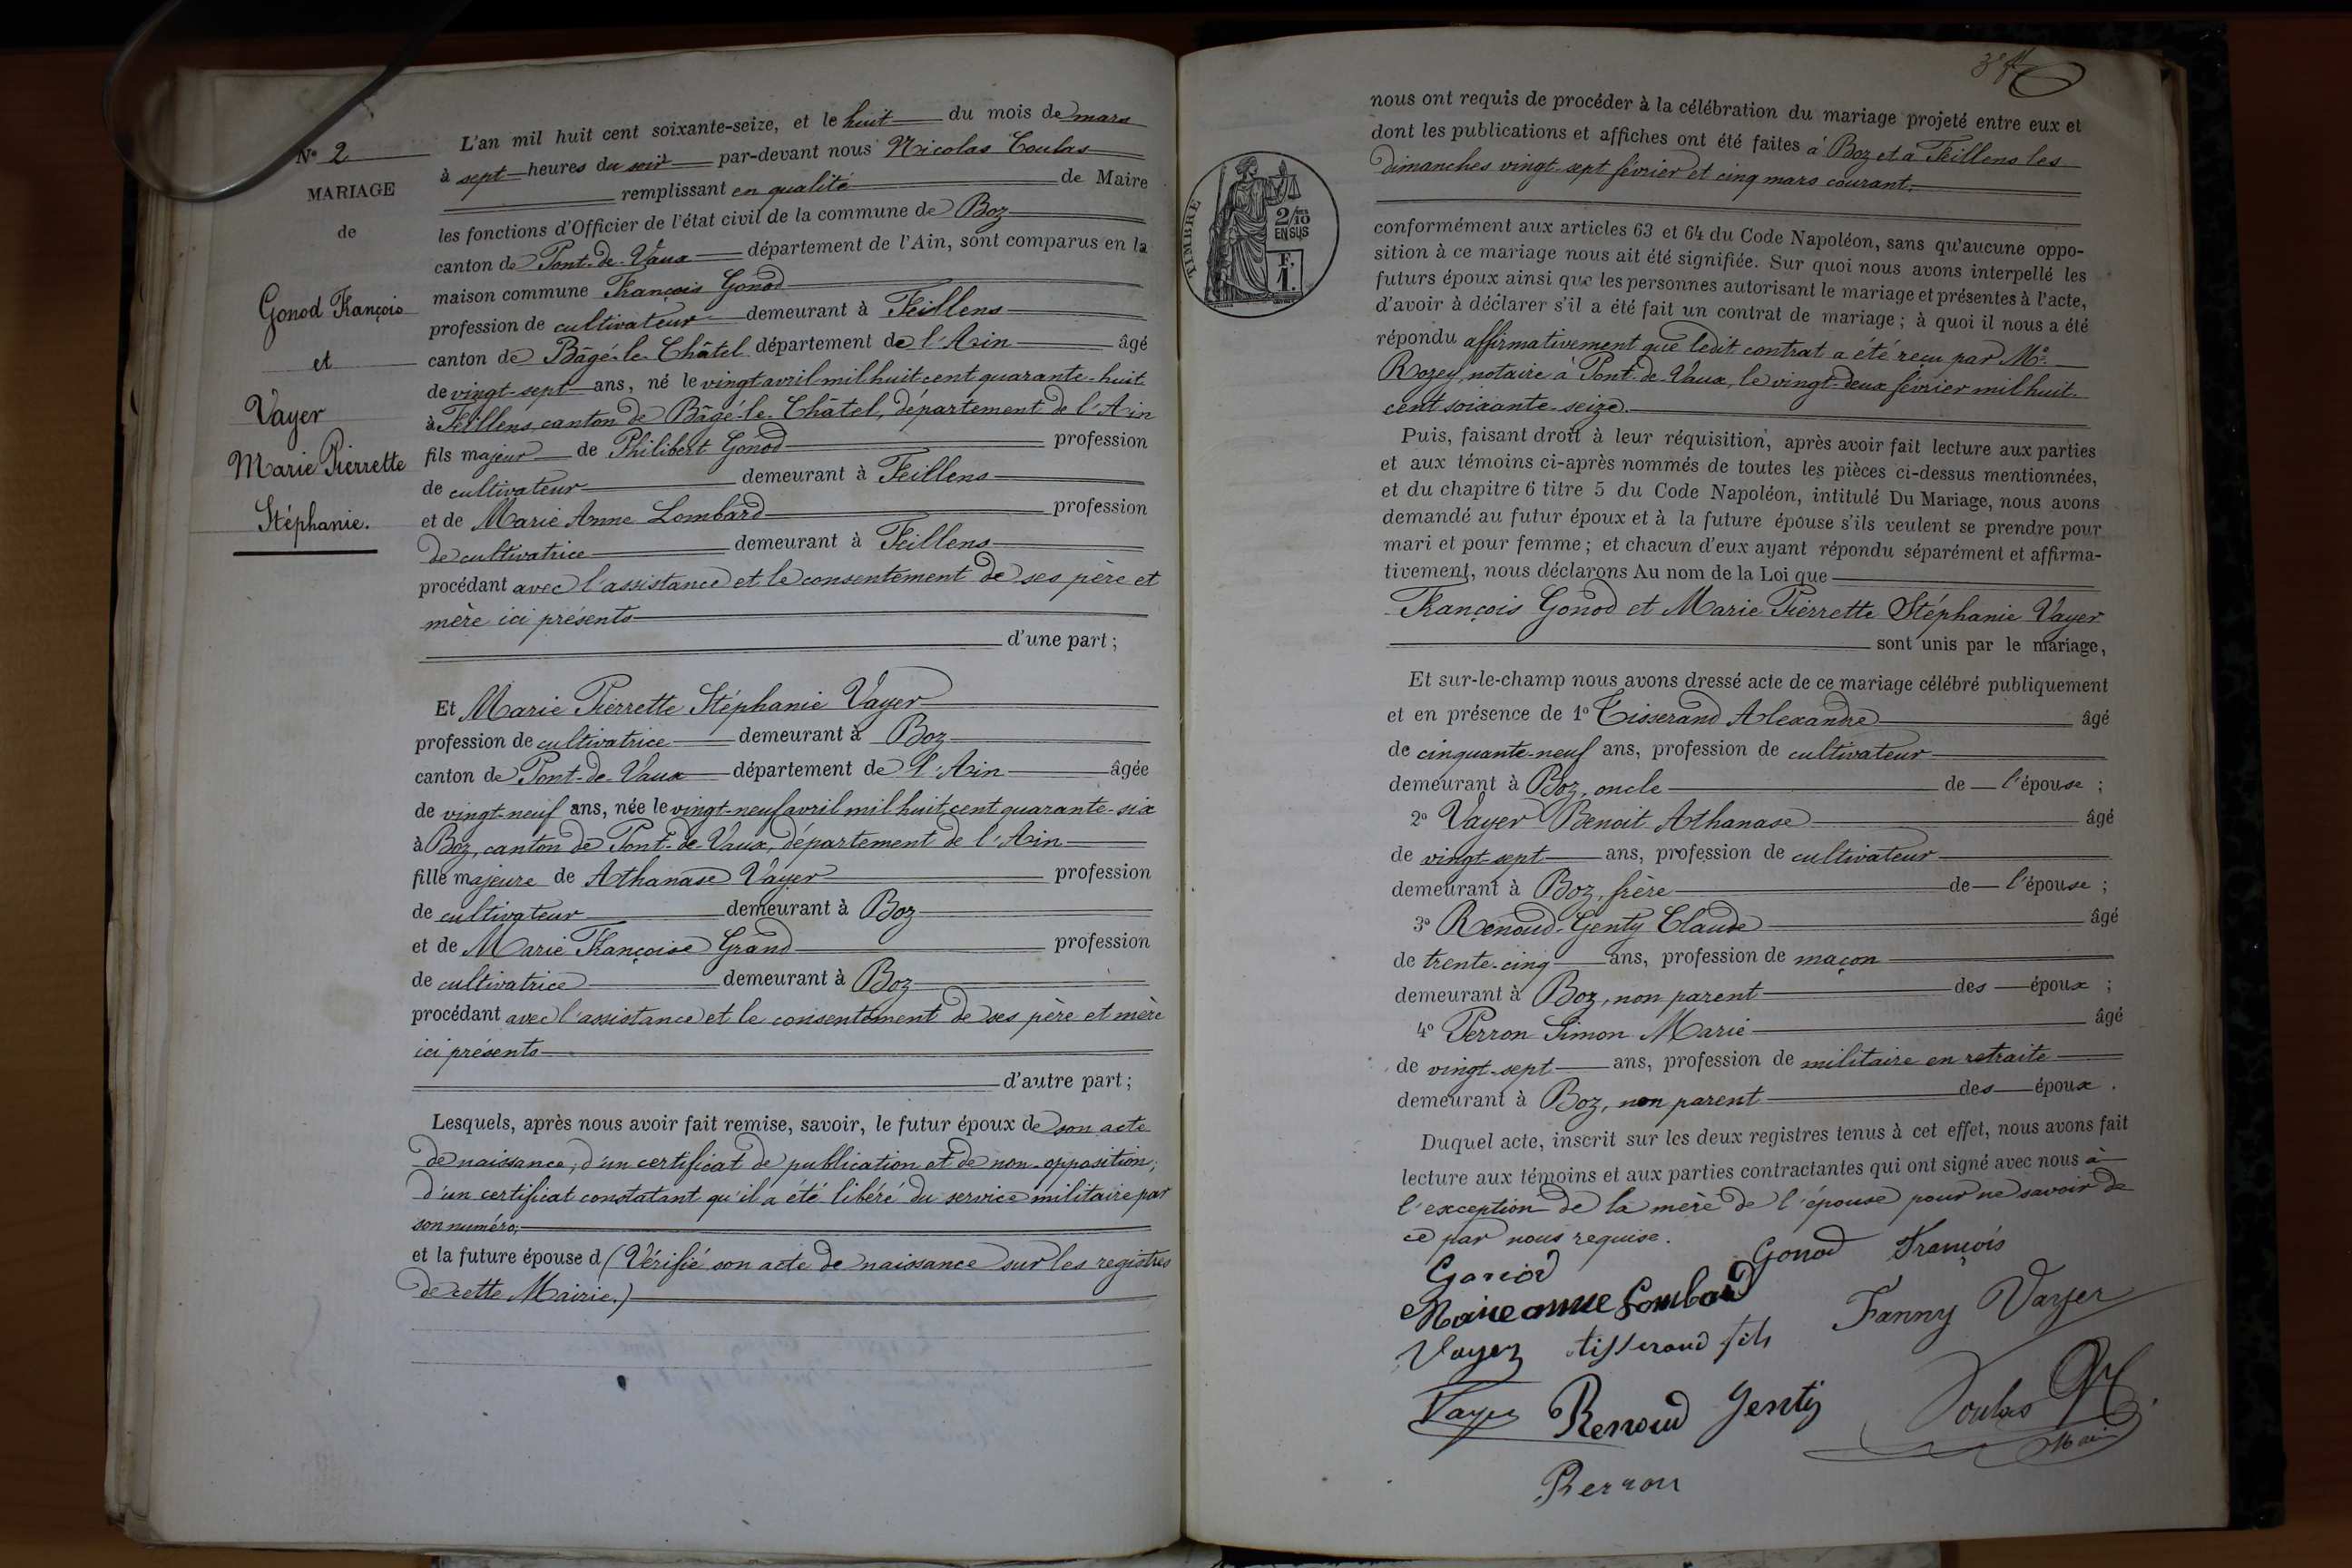 N° 2
MARIAGE
de
Gonod François
et
Vayer
Marie Pierrette
Stéphanie.
L'an mil huit cent soixante-seize, et le huit du mois de mars
à sept heures du soir par-devant nous Nicolas Coulas
remplissant en qualité de Maire
les fonctions d'Officier de l'état civil de la commune de Boz
canton de Pont-de-Vaux département de l'Ain, sont comparus en la
maison commune François Gonod
profession de cultivateur demeurant à Feillens
canton de Bâgé-le-Châtel département de l'Ain âgé
de vingt-sept ans, né le vingt avril mil huit cent quarante-huit
à Feillens, canton de Bâgé-le-Châtel, département de l'Ain
fils majeur de Philibert Gonod profession
de cultivateur demeurant à Feillens
et de Marie Anne Lombard profession
de cultivatrice demeurant à Feillens
procédant avec l'assistance et le consentement de ses père et
mère ici présents
d'une part ;
Et Marie Pierrette Stéphanie Vayer
profession de cultivatrice demeurant à Boz
canton de Pont-de-Vaux département de l'Ain âgée
de vingt-neuf ans, née le vingt-neuf avril mil huit cent quarante-six
à Boz, canton de Pont-de-Vaux, département de l'Ain
fille majeure de Athanase Vayer profession
de cultivateur demeurant à Boz
et de Marie Françoise Grand profession
de cultivatrice demeurant à Boz
procédant avec l'assistance et le consentement de ses père et mère
ici présents
d'autre part ;
Lesquels, après nous avoir fait remise, savoir, le futur époux de son acte
de naissance ; d'un certificat de publication et de non-opposition ;
d'un certificat constatant qu'il a été libéré du service militaire par
son numéro;
et la future épouse d (Vérifié son acte de naissance sur les registres
de cette Mairie.)
nous ont requis de procéder à la célébration du mariage projeté entre eux et
dont les publications et affiches ont été faites à Boz et à Feillens les
dimanches vingt-sept février et cinq mars courant.
TIMBRE
2/10
EN SUS
F.
1.
conformément aux articles 63 et 64 du Code Napoléon, sans qu'aucune oppo-
sition à ce mariage nous ait été signifiée. Sur quoi nous avons interpellé les
futurs époux ainsi que les personnes autorisant le mariage et présentes à l'acte,
d'avoir à déclarer s'il a été fait un contrat de mariage ; à quoi il nous a été
répondu affirmativement que ledit contrat a été reçu par Me
Rozey, notaire à Pont-de-Vaux, le vingt-deux février mil huit
cent soixante-seize.
Puis, faisant droit à leur réquisition, après avoir fait lecture aux parties
et aux témoins ci-après nommés de toutes les pièces ci-dessus mentionnées,
et du chapitre 6 titre 5 du Code Napoléon, intitulé Du Mariage, nous avons
demandé au futur époux et à la future épouse s'ils veulent se prendre pour
mari et pour femme ; et chacun d'eux ayant répondu séparément et affirma-
tivement, nous déclarons Au nom de la Loi que
François Gonod et Marie Pierrette Stéphanie Vayer
sont unis par le mariage,
Et sur-le-champ nous avons dressé acte de ce mariage célébré publiquement
et en présence de 1° Tisserand Alexandre âgé
de cinquante-neuf ans, profession de cultivateur
demeurant à Boz, oncle de l'épouse ;
2° Vayer Benoit Athanase âgé
de vingt-sept ans, profession de cultivateur
demeurant à Boz, frère de l'épouse ;
3° Renoud-Genty Claude âgé
de trente-cinq ans, profession de maçon
demeurant à Boz, non parent des époux ;
4° Perron Simon Marie âgé
de vingt-sept ans, profession de militaire en retraite
demeurant à Boz, non parent des époux.
Duquel acte, inscrit sur les deux registres tenus à cet effet, nous avons fait
lecture aux témoins et aux parties contractantes qui ont signé avec nous à
l'exception de la mère de l'épouse pour ne savoir de
ce par nous requise.
Gonod Gonod François
Marie anne Lombard
Fanny Vayer
Vayer tisserand fils
Vayer Renoud Genty Coulas
Maire
Perron